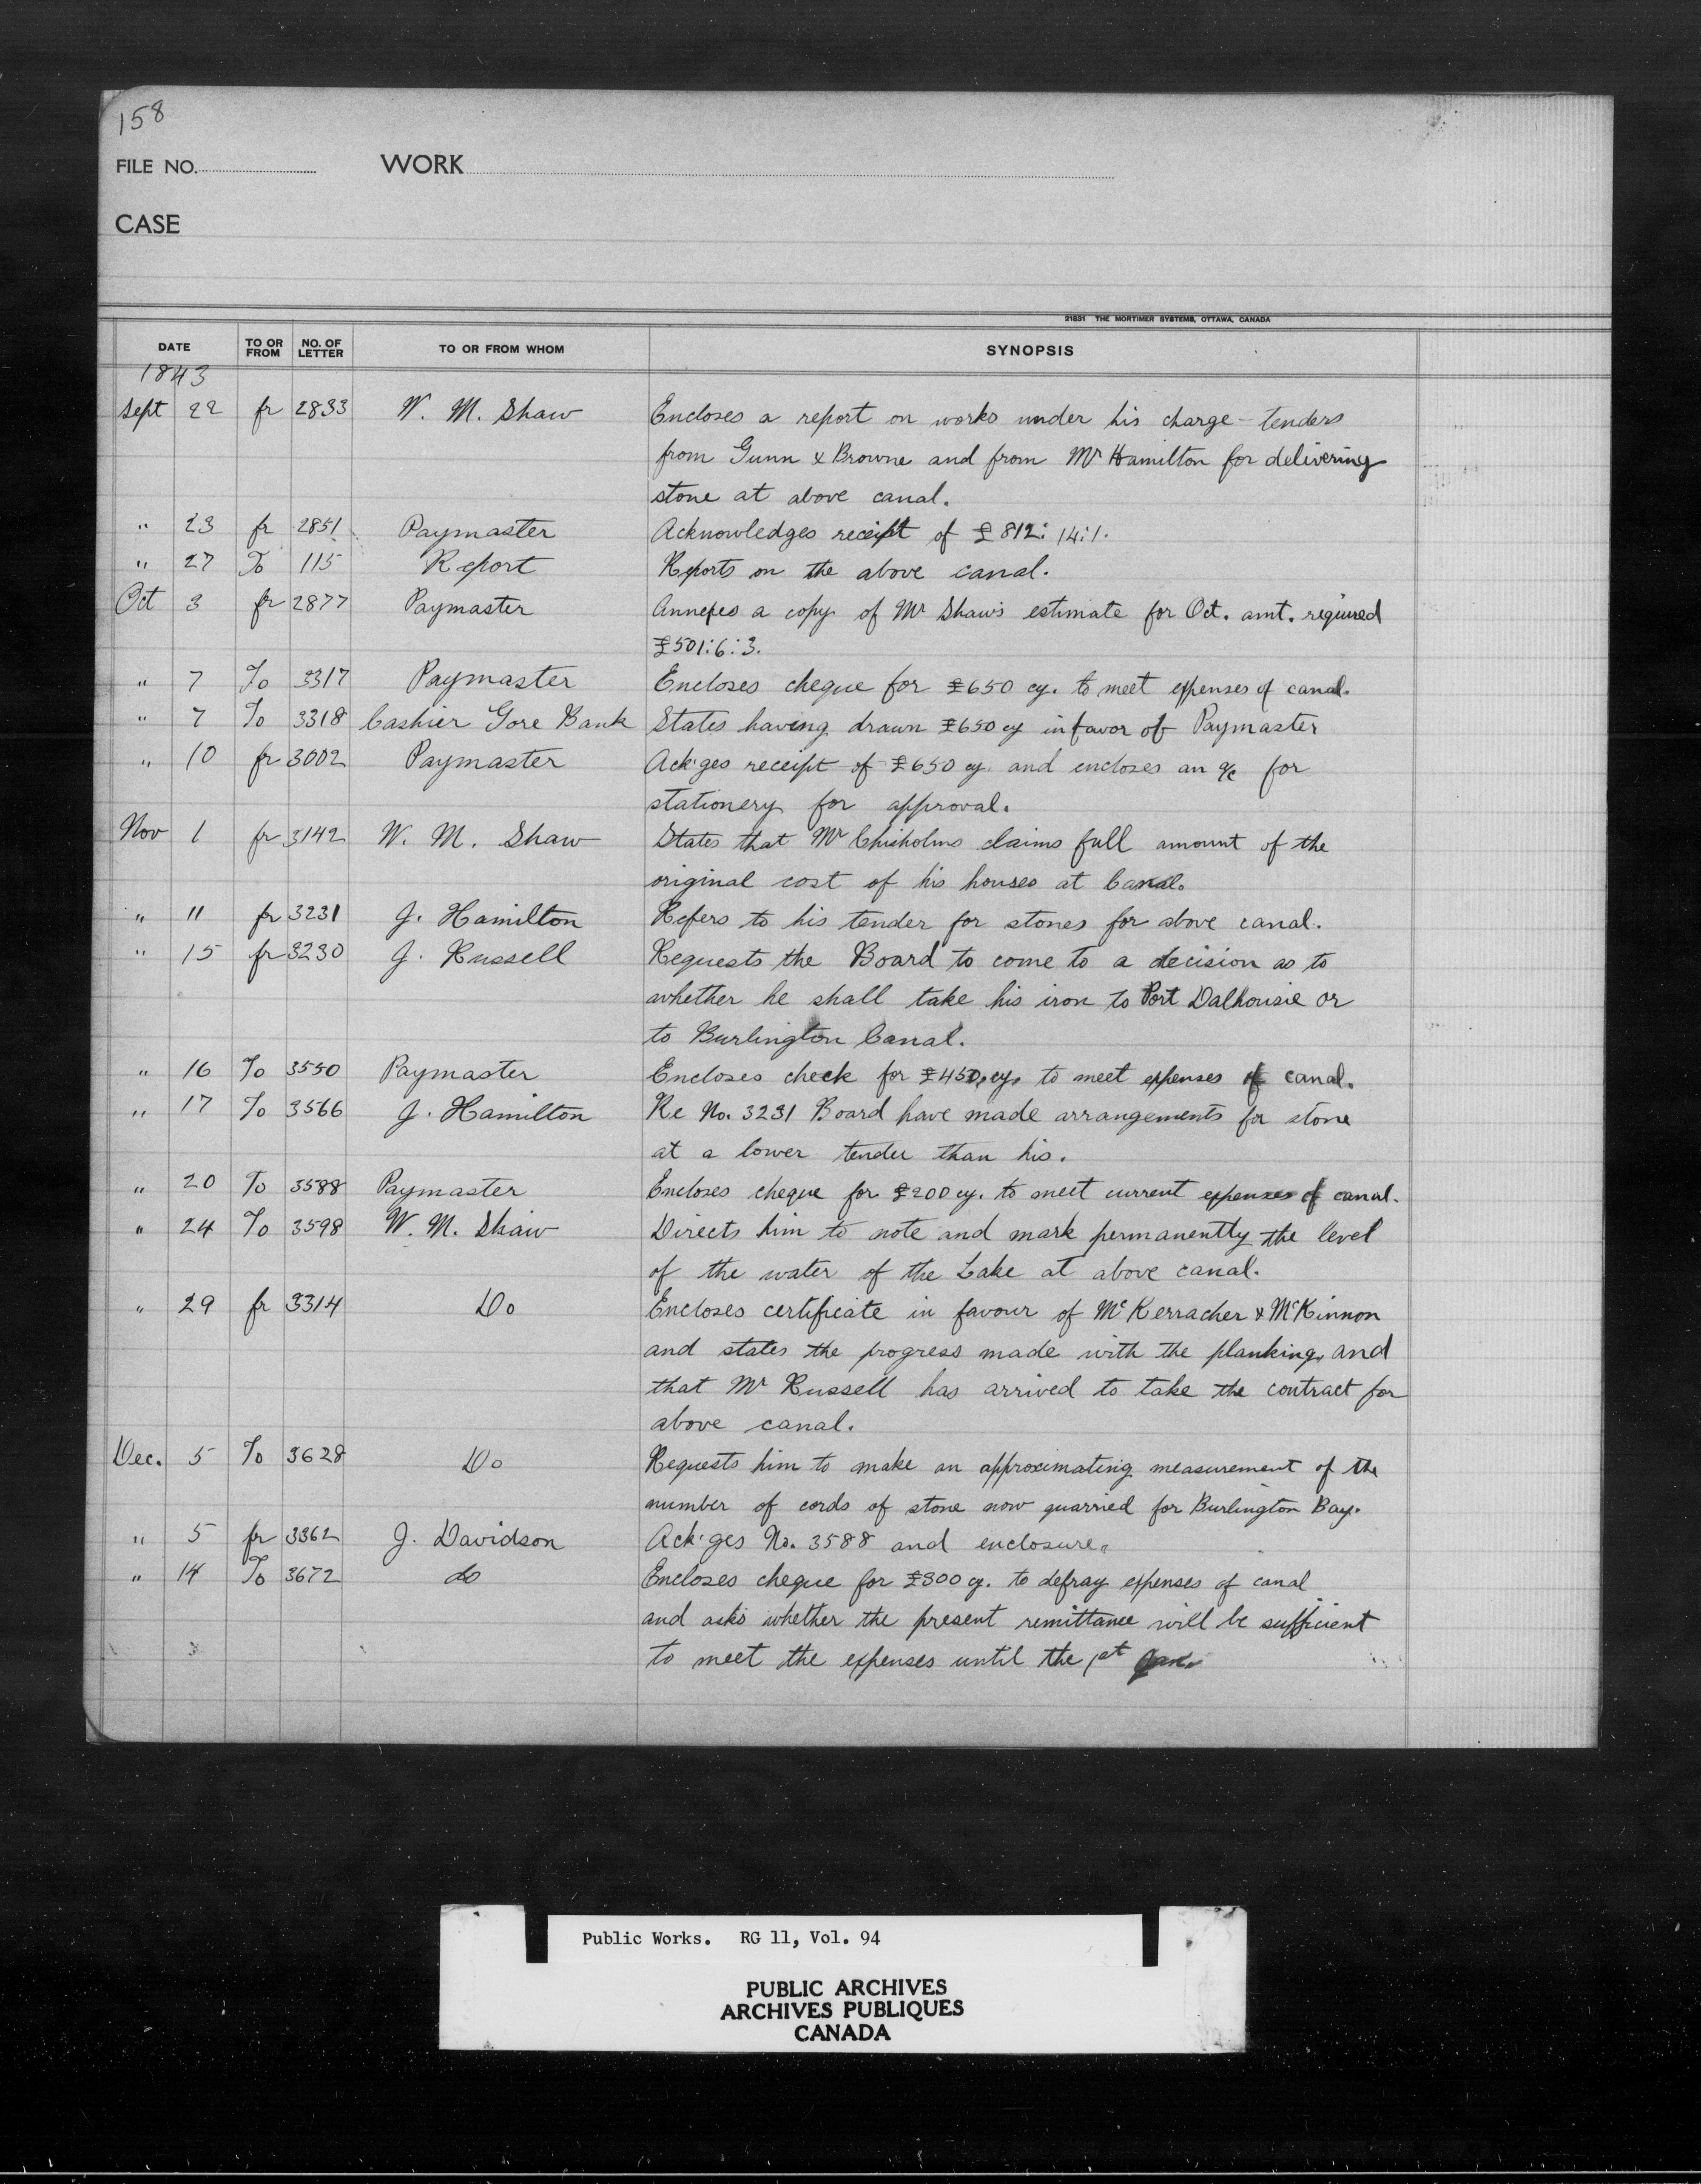 158
FILE NO. WORK
CASE
21831 THE MORTIMER SYSTEMS, OTTAWA, CANADA
DATE TO OR FROM NO. OF LETTER TO OR FROM WHOM SYNOPSIS
1843
Sept 22 fr 2833 W. M. Shaw Encloses a report on works under his charge - tenders
from Gunn & Browne and from Mr Hamilton for delivering
stone at above canal.
" 23 fr 2851 Paymaster Acknowledges receipt of £812:14:1.
" 27 To 115 Report Reports on the above canal.
Oct 3 fr 2877 Paymaster Annexes a copy of Mr Shaw's estimate for Oct. amt. required
£501:6:3.
" 7 To 3317 Paymaster Encloses cheque for £650 cy. to meet expenses of canal.
" 7 To 3318 Cashier Gore Bank States having drawn £650 cy in favor of Paymaster
" 10 fr 3002 Paymaster Ack'ges receipt of £650 cy and encloses an a/c for
stationery for approval.
Nov 1 fr 3142 W. M. Shaw States that Mr Chisholms claims full amount of the
original cost of his houses at Canal.
" 11 fr 3231 J. Hamilton Refers to his tender for stones for above canal.
" 15 fr 3230 J. Russell Requests the Board to come to a decision as to
whether he shall take his iron to Port Dalhousie or
to Burlington Canal.
" 16 To 3550 Paymaster Encloses check for £450, cy. to meet expenses of canal.
" 17 To 3566 J. Hamilton Re No. 3231 Board have made arrangements for stone
at a lower tender than his.
" 20 To 3588 Paymaster Encloses cheque for £200 cy. to meet current expenses of canal.
" 24 To 3598 W. M. Shaw Directs him to note and mark permanently the level
of the water of the Lake at above canal.
" 29 fr 3314 Do Encloses certificate in favour of McKerracher & McKinnon
and states the progress made with the planking, and
that Mr Russell has arrived to take the contract for
above canal.
Dec. 5 To 3628 Do Requests him to make an approximating measurement of the
number of cords of stone now quarried for Burlington Bay.
" 5 fr 3362 J. Davidson Ack'ges No. 3588 and enclosure.
" 14 To 3672 do Encloses cheque for £300 cy. to defray expenses of canal
and asks whether the present remittance will be sufficient
to meet the expenses until the 1st Jan.
Public Works. RG 11, Vol. 94
PUBLIC ARCHIVES
ARCHIVES PUBLIQUES
CANADA